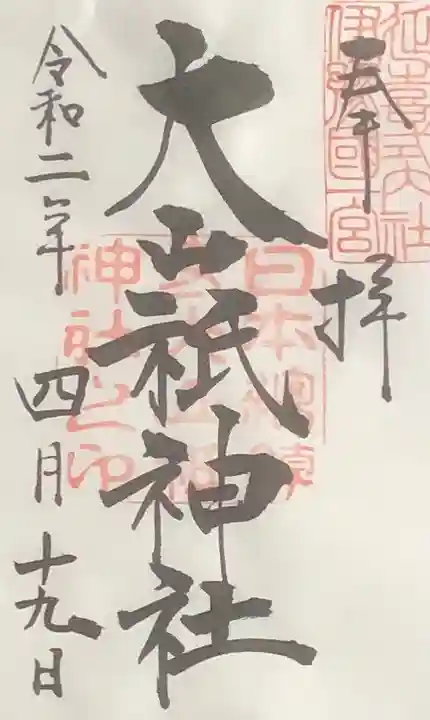 奉拝
延喜式内社
伊豫国一宮
大山祇神社
日本總鎮
守大山祇
神社之印
令和二年
四月十九日